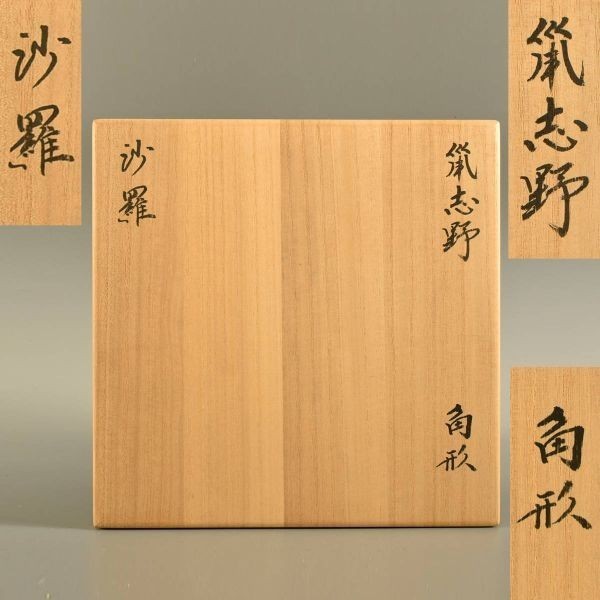 鼠志野
角形
鼠志野
角形
沙羅
沙羅